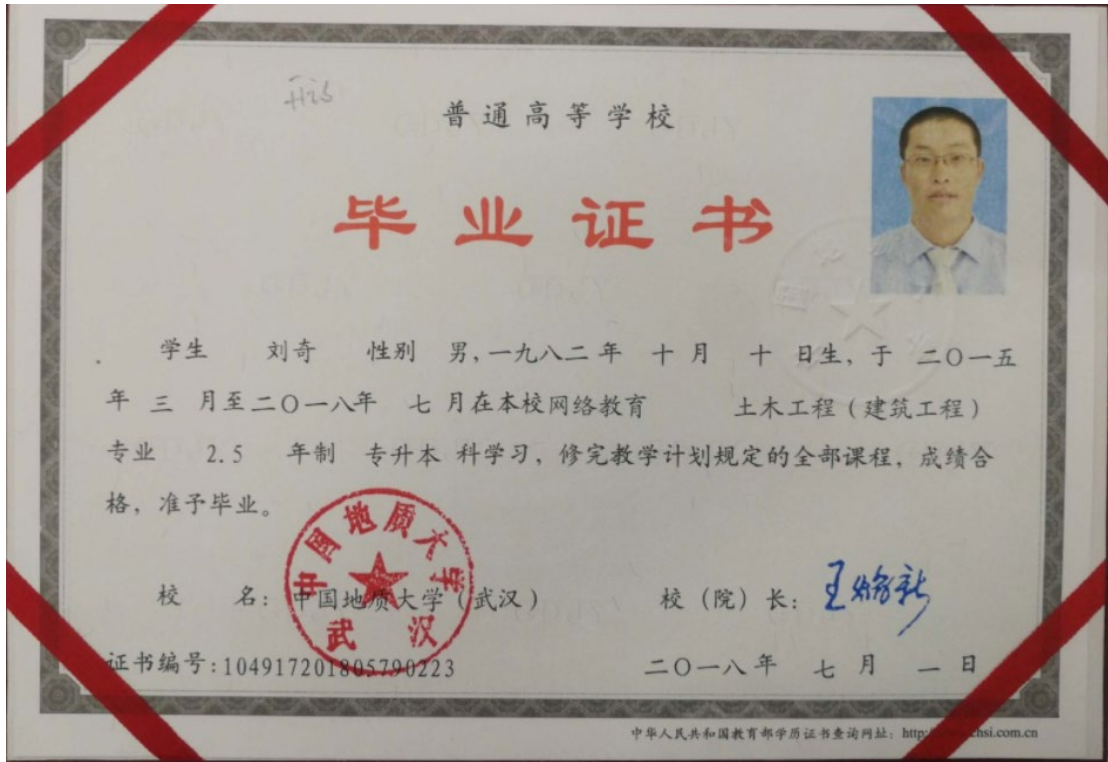 普通高等学校
毕业证书
学生 刘奇 性别 男,一九八二年 十月 十日生,于 二〇一五
年 三 月至二〇一八年 七月在本校网络教育 土木工程(建筑工程)
专业 2.5 年制 专升本 科学习,修完教学计划规定的全部课程,成绩合
格,准予毕业。
中国地质大学
武汉
校 名:中国地质大学(武汉) 校(院)长:王焰新
证书编号:104917201805790223 二〇一八年 七月 一日
中华人民共和国教育部学历证书查询网址:http:
chsi.com.cn